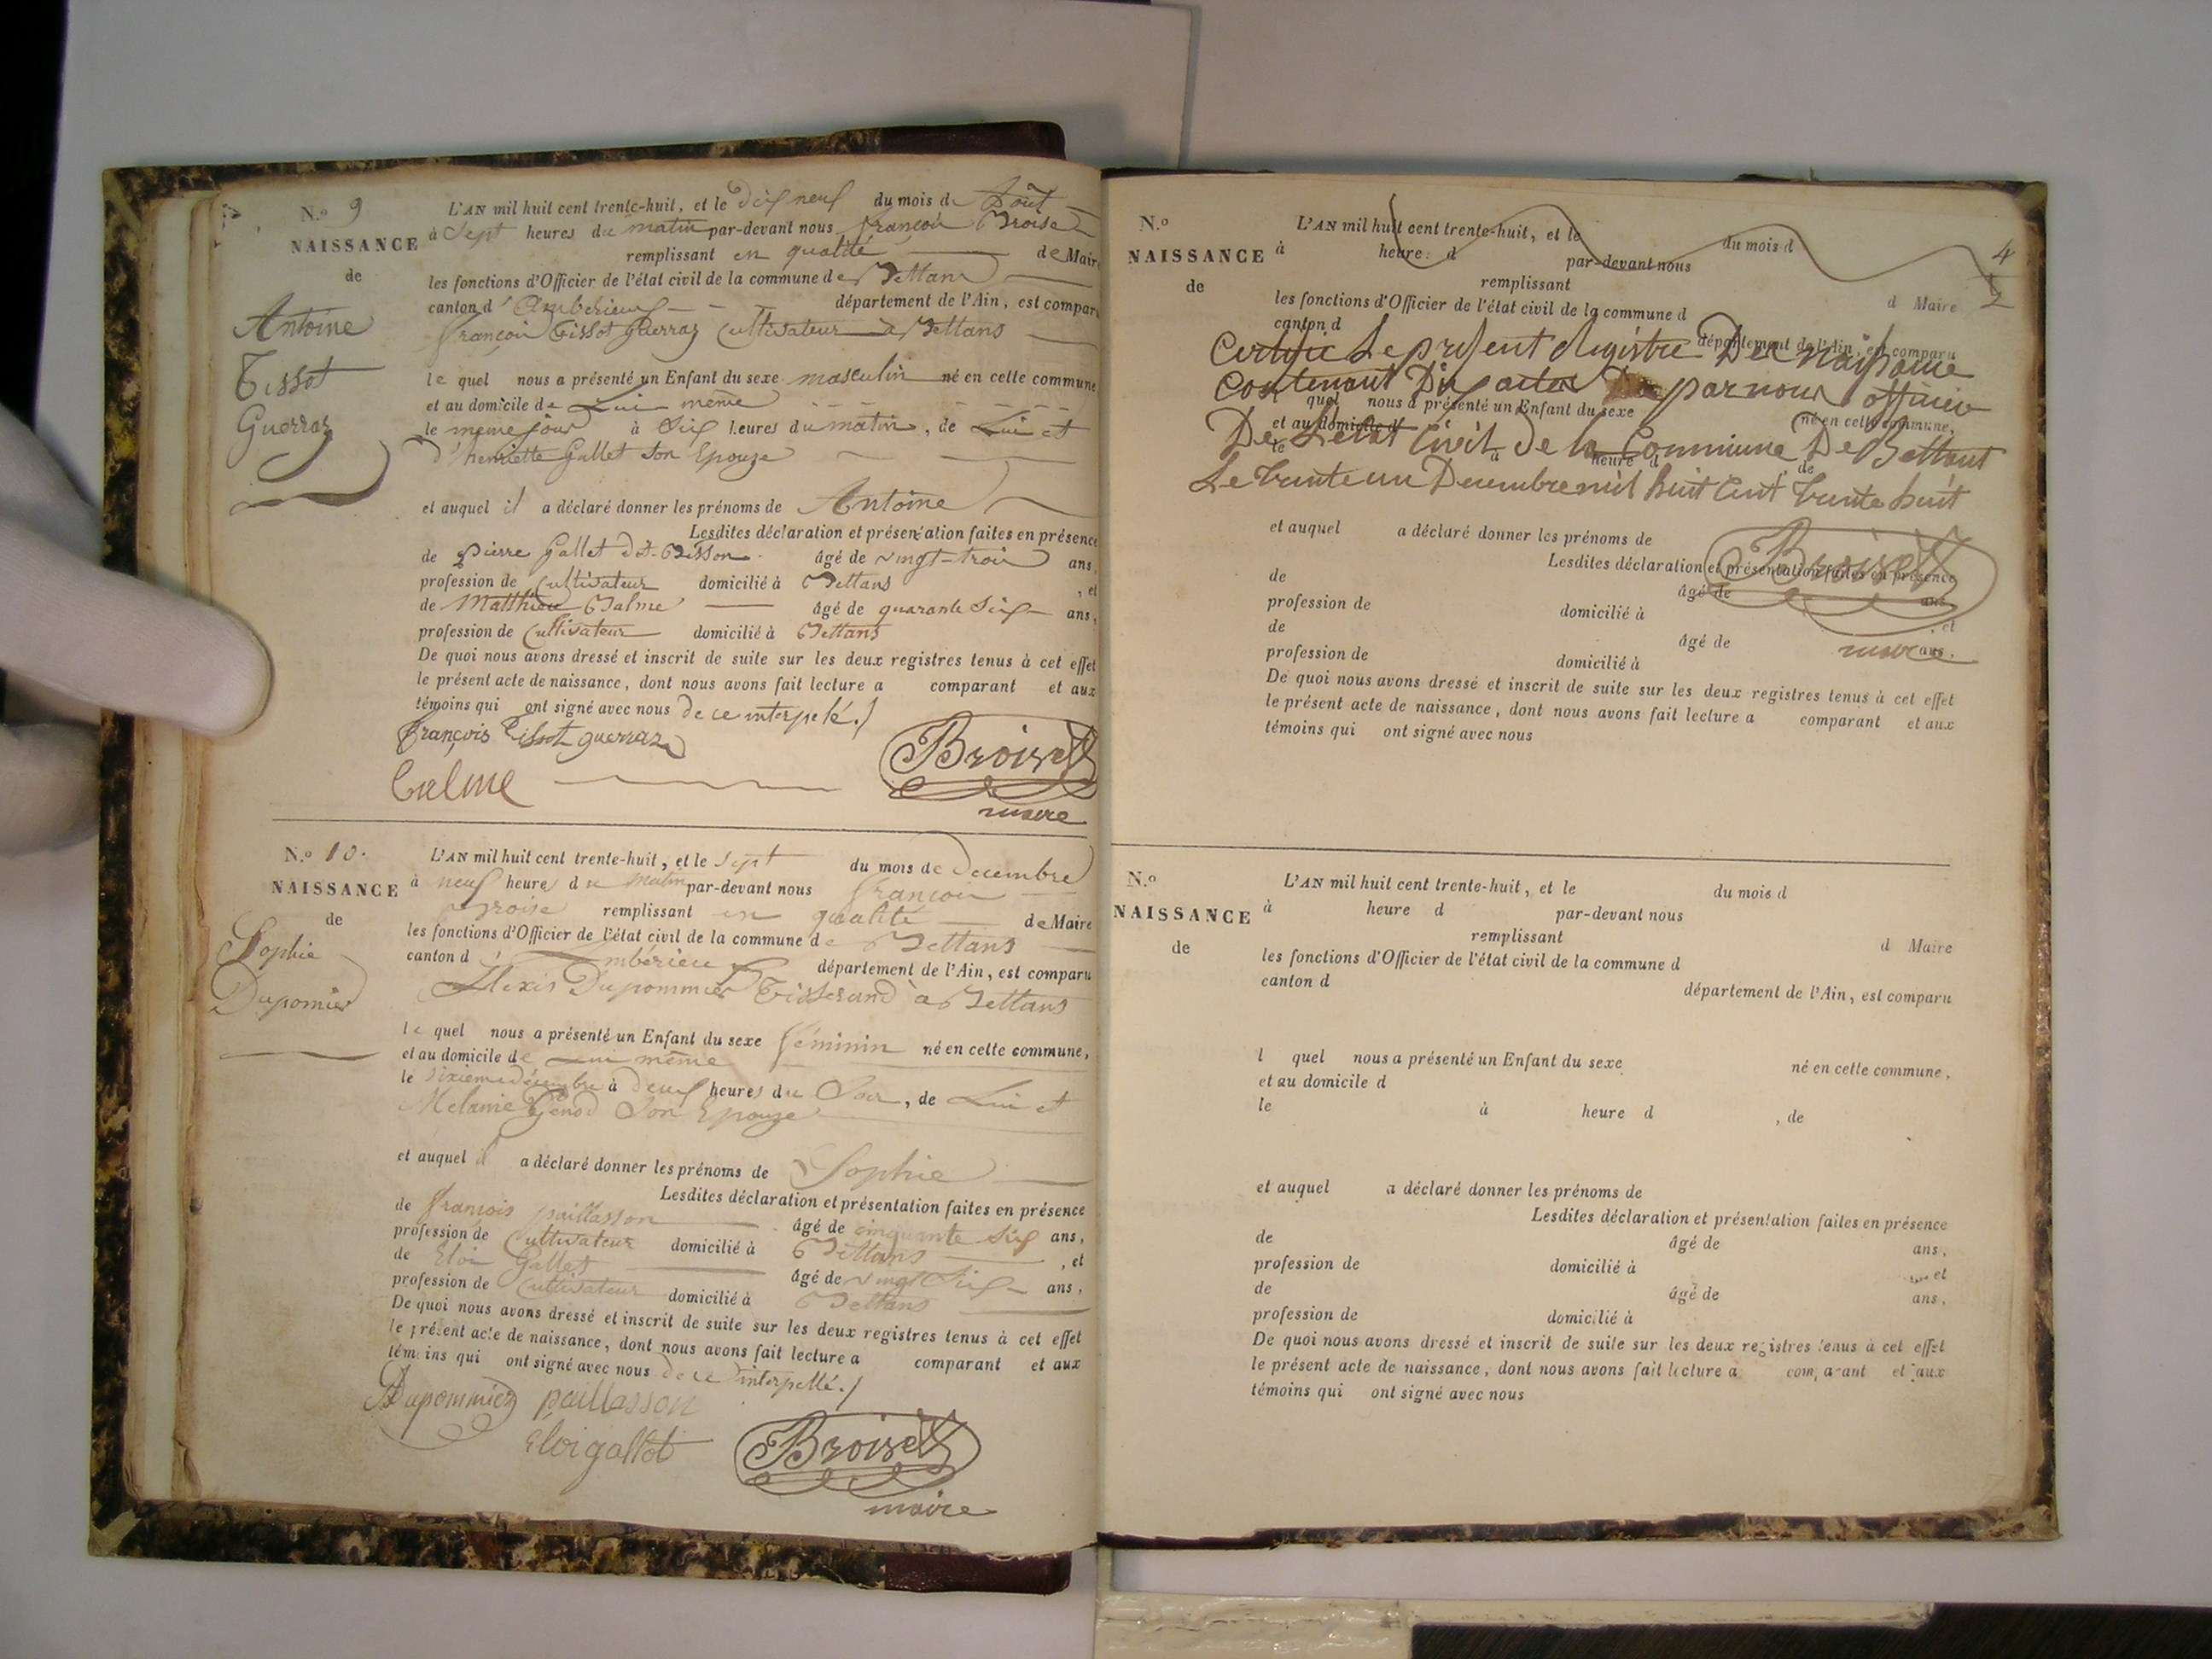 N.º 9
NAISSANCE
de
Antoine
Tissot
Guerraz
L'AN mil huit cent trente-huit, et le dix neuf du mois d'Août
à Sept heures du matin par-devant nous françois Broise
remplissant en qualité de Maire
les fonctions d'Officier de l'état civil de la commune de Bettans
canton d'Ambérieux département de l'Ain, est comparu
françois Tissot Guerraz Cultivateur à Bettans
le quel nous a présenté un Enfant du sexe masculin né en cette commune
et au domicile de Lui même
le même jour à Six heures du matin, de Lui et
d'henriette Gallet Son Epouze
et auquel il a déclaré donner les prénoms de Antoine
Lesdites déclaration et présentation faites en présence
de pierre Gallet dit âgé de vingt-trois ans,
profession de Cultivateur domicilié à Bettans, et
de Matthieu Balme âgé de quarante Six ans,
profession de Cultivateur domicilié à Bettans
De quoi nous avons dressé et inscrit de suite sur les deux registres tenus à cet effet
le présent acte de naissance, dont nous avons fait lecture a comparant et aux
témoins qui ont signé avec nous de ce interpelé./
françois tissot guerraz
Balme
Broise
maire
N.º 10.
NAISSANCE
de
Sophie
Dupomier
L'AN mil huit cent trente-huit, et le Sept du mois de Decembre
à neuf heures du matin par-devant nous françois
Broise remplissant en qualité de Maire
les fonctions d'Officier de l'état civil de la commune de Bettans
canton d'Ambérieux département de l'Ain, est comparu
Alexis Dupommier Tisserand à Bettans
le quel nous a présenté un Enfant du sexe féminin né en cette commune,
et au domicile de Lui même
le sixieme décembre à deux heures du Soir, de Lui et
Melanie Genod Son Epouze
et auquel il a déclaré donner les prénoms de Sophie
Lesdites déclaration et présentation faites en présence
de françois paillasson âgé de cinquante Six ans,
profession de Cultivateur domicilié à Bettans, et
de Eloi Gallet âgé de vingt Six ans,
profession de Cultivateur domicilié à Bettans
De quoi nous avons dressé et inscrit de suite sur les deux registres tenus à cet effet
le présent acte de naissance, dont nous avons fait lecture a comparant et aux
témoins qui ont signé avec nous de ce interpellé./
Dupommier paillasson
Eloi gallet
Broise
maire
N.º
NAISSANCE
de
L'AN mil huit cent trente-huit, et le du mois d
à heure d par-devant nous
remplissant d Maire
4
2
les fonctions d'Officier de l'état civil de la commune d
canton d département de l'Ain, est comparu
Certifié Le présent Régistre Des naissance
Contenant Dix actes par nous officier
De L'etat Civil De la Commune De Bettant
Le trente un Decembre mil huit Cent trente huit
quel nous a présenté un Enfant du sexe né en cette commune,
et au domicile d
le à heure d , de
et auquel a déclaré donner les prénoms de
Lesdites déclaration et présentation faites en présence
Broise
maire
de âgé de ans,
profession de domicilié à , et
de âgé de ans,
profession de domicilié à
De quoi nous avons dressé et inscrit de suite sur les deux registres tenus à cet effet
le présent acte de naissance, dont nous avons fait lecture a comparant et aux
témoins qui ont signé avec nous
N.º
NAISSANCE
de
L'AN mil huit cent trente-huit, et le du mois d
à heure d par-devant nous
remplissant d Maire
les fonctions d'Officier de l'état civil de la commune d
canton d département de l'Ain, est comparu
l quel nous a présenté un Enfant du sexe né en cette commune,
et au domicile d
le à heure d , de
et auquel a déclaré donner les prénoms de
Lesdites déclaration et présentation faites en présence
de âgé de ans,
profession de domicilié à et
de âgé de ans,
profession de domicilié à
De quoi nous avons dressé et inscrit de suite sur les deux registres tenus à cet effet
le présent acte de naissance, dont nous avons fait lecture a comparant et aux
témoins qui ont signé avec nous